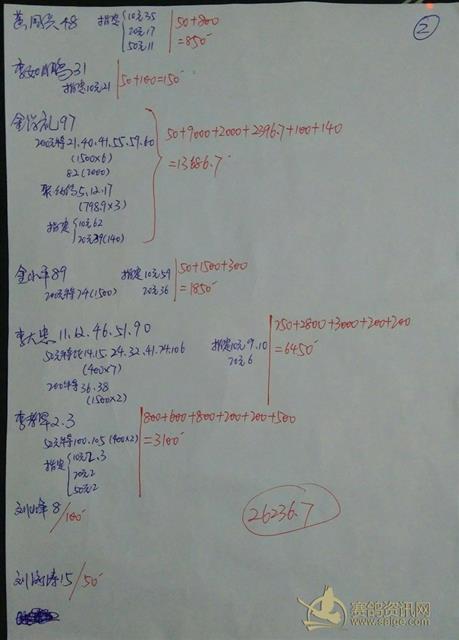 ②
48 指定 10元35
20元17
50元11
50+800
=850
31
指定10元21
50+100=150
97
200元特21.40.41.55.59.60
(1500×6)
82(2000)
5.12.17
(798.9×3)
指定 10元62
20元39(140)
50+9000+2000+2396.7+100+140
=13686.7
金小年89 指定10元59
200元特74(1500) 20元36
50+1500+300
=1850
李大忠 11.12.46.51.90
14.15.24.32.41.74.106 指定10元9.10
(400×7) 20元6
200元特36.38
(1500×2)
250+2800+3000+200+200
=6450
2.3
100.105(400×2)
指定 10元2.3
20元2
50元2
800+600+800+200+200+500
=3100
8/100
26236.7
15/50
赛鸽资讯网
www.saige.com